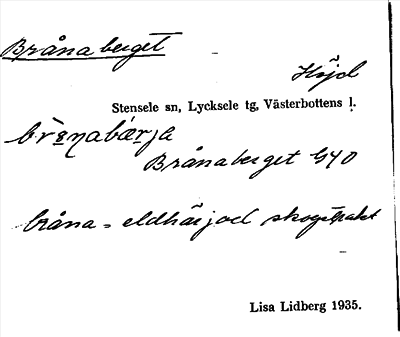 Brånaberget
Höjd
Stensele sn, Lycksele tg, Västerbottens l.
Brånaberget G40
bråna = eldhärjad skogstrakt
Lisa Lidberg 1935.